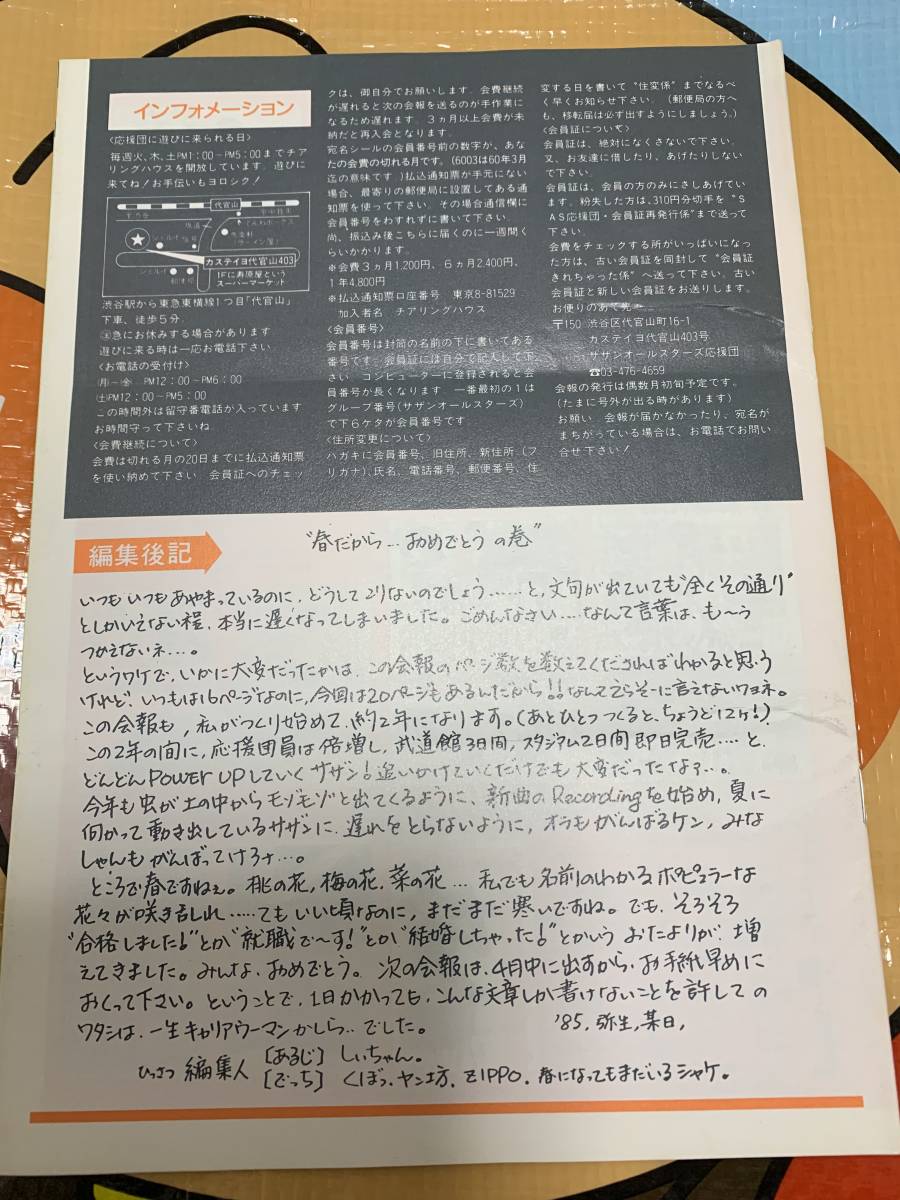 インフォメーション
〈応援団に遊びに来られる日〉
毎週火、木、土PM1：00〜PM5：00までチア
リングハウスを開放しています。遊びに
来てね！お手伝いもヨロシク！
代官山
カステイヨ代官山403
1Fに寿原屋という
スーパーマーケット
渋谷駅から東急東横線1つ目「代官山」
下車、徒歩5分。
急にお休みする場合があります
遊びに来る時は一応お電話下さい
〈お電話の受付け〉
(月)〜(金) PM12：00〜PM6：00
(土)PM12：00〜PM5：00
この時間外は留守番電話が入っています
お時間守って下さいね
〈会費継続について〉
会費は切れる月の20日までに払込通知票
を使い納めて下さい 会員証へのチェッ
クは、御自分でお願いします。会費継続
が遅れると次の会報を送るのが手作業に
なるため遅れます。3ヵ月以上会費が未
納だと再入会となります。
宛名シールの会員番号前の数字が、あな
たの会費の切れる月です。(6003は60年3月
迄の意味です)払込通知票が手元にない
場合、最寄りの郵便局に設置してある通
知票を使って下さい。その場合通信欄に
会員番号をわすれずに書いて下さい。
尚、振込み後こちらに届くのに一週間ぐ
らいかかります。
※会費3ヵ月1,200円、6ヵ月2,400円、
1年4,800円
※払込通知票口座番号 東京8-81529
加入者名 チアリングハウス
〈会員番号〉
会員番号は封筒の名前の下に書いてある
番号です 会員証には自分で記入して下
さい コンピューターに登録されると会
員番号が長くなります 一番最初の1は
グループ番号(サザンオールスターズ)
で下6ケタが会員番号です
〈住所変更について〉
ハガキに会員番号、旧住所、新住所、(フ
リガナ)、氏名、電話番号、郵便番号、住
変する日を書いて“住変係”までなるべ
く早くお知らせ下さい。(郵便局の方へ
も、移転届は必ず出すようにしましょう。)
〈会員証について〉
会員証は、絶対になくさないで下さい。
又、お友達に借したり、あげたりしない
で下さい。
会員証は、会員の方のみにさしあげてい
ます。紛失した方は、310円分切手を“S
AS応援団・会員証再発行係”まで送って
下さい。
会費をチェックする所がいっぱいになっ
た方は、古い会員証を同封して“会員証
きれちゃった係”へ送って下さい。古い
会員証と新しい会員証をお送りします。
お便りのあて先
〒150 渋谷区代官山町16-1
カステイヨ代官山403号
サザンオールスターズ応援団
☎03-476-4659
会報の発行は偶数月初旬予定です。
(たまに号外が出る時があります)
お願い 会報が届かなかったり、宛名が
まちがっている場合は、お電話でお問い
合せ下さい！
編集後記
“春だから…おめでとうの巻”
いつもいつもあやまっているのに、どうしてこりないのでしょう……と、文句が出ていても“全くその通り”
としかいえない程、本当に遅くなってしまいました。ごめんなさい……なんて言葉は、も〜う
つかえないネ…。
というワケで、いかに大変だったかは、この会報のページ数を数えてくださればわかると思う
けれど、いつもは16ページなのに、今回は20ページもあるんだから!!なんてえらそーに言えないワヨネ。
この会報も、私がつくり始めて、約2年になります。(あとひとつつくると、ちょうど12ヶ!)
この2年の間に、応援団員は倍増し、武道館3日間、スタジアム2日間即日完売……と、
どんどんPOWER UPしていくサザン！追いかけていくだけでも大変だったなァ…。
今年も虫が土の中からモゾモゾと出てくるように、新曲のRecordingを始め、夏に
向かって動き出しているサザンに、遅れをとらないように、オラもがんばるケン、みな
しゃんもがんばってけろナ…。
ところで春ですねぇ。桃の花、梅の花、菜の花…私でも名前のわかるポピュラーな
花々が咲き乱れ……てもいい頃なのに、まだまだ寒いですね。でも、そろそろ
“合格しました！”とか“就職で〜す！”とか“結婚しちゃった！”とかいうおたよりが、増
えてきました。みんな、おめでとう。次の会報は、4月中に出すから、お手紙し早めに
おくって下さい。ということで、1日かかっても、こんな文章しか書けないことを許しての
ワタシは、一生キャリアウーマンかしら…でした。 '85.弥生,某日,
ひっさつ 編集人 [あるじ] しぃちゃん。
[でっち] くぼっ.ヤン坊.ZIPPO.春になってもまだいるシャケ。